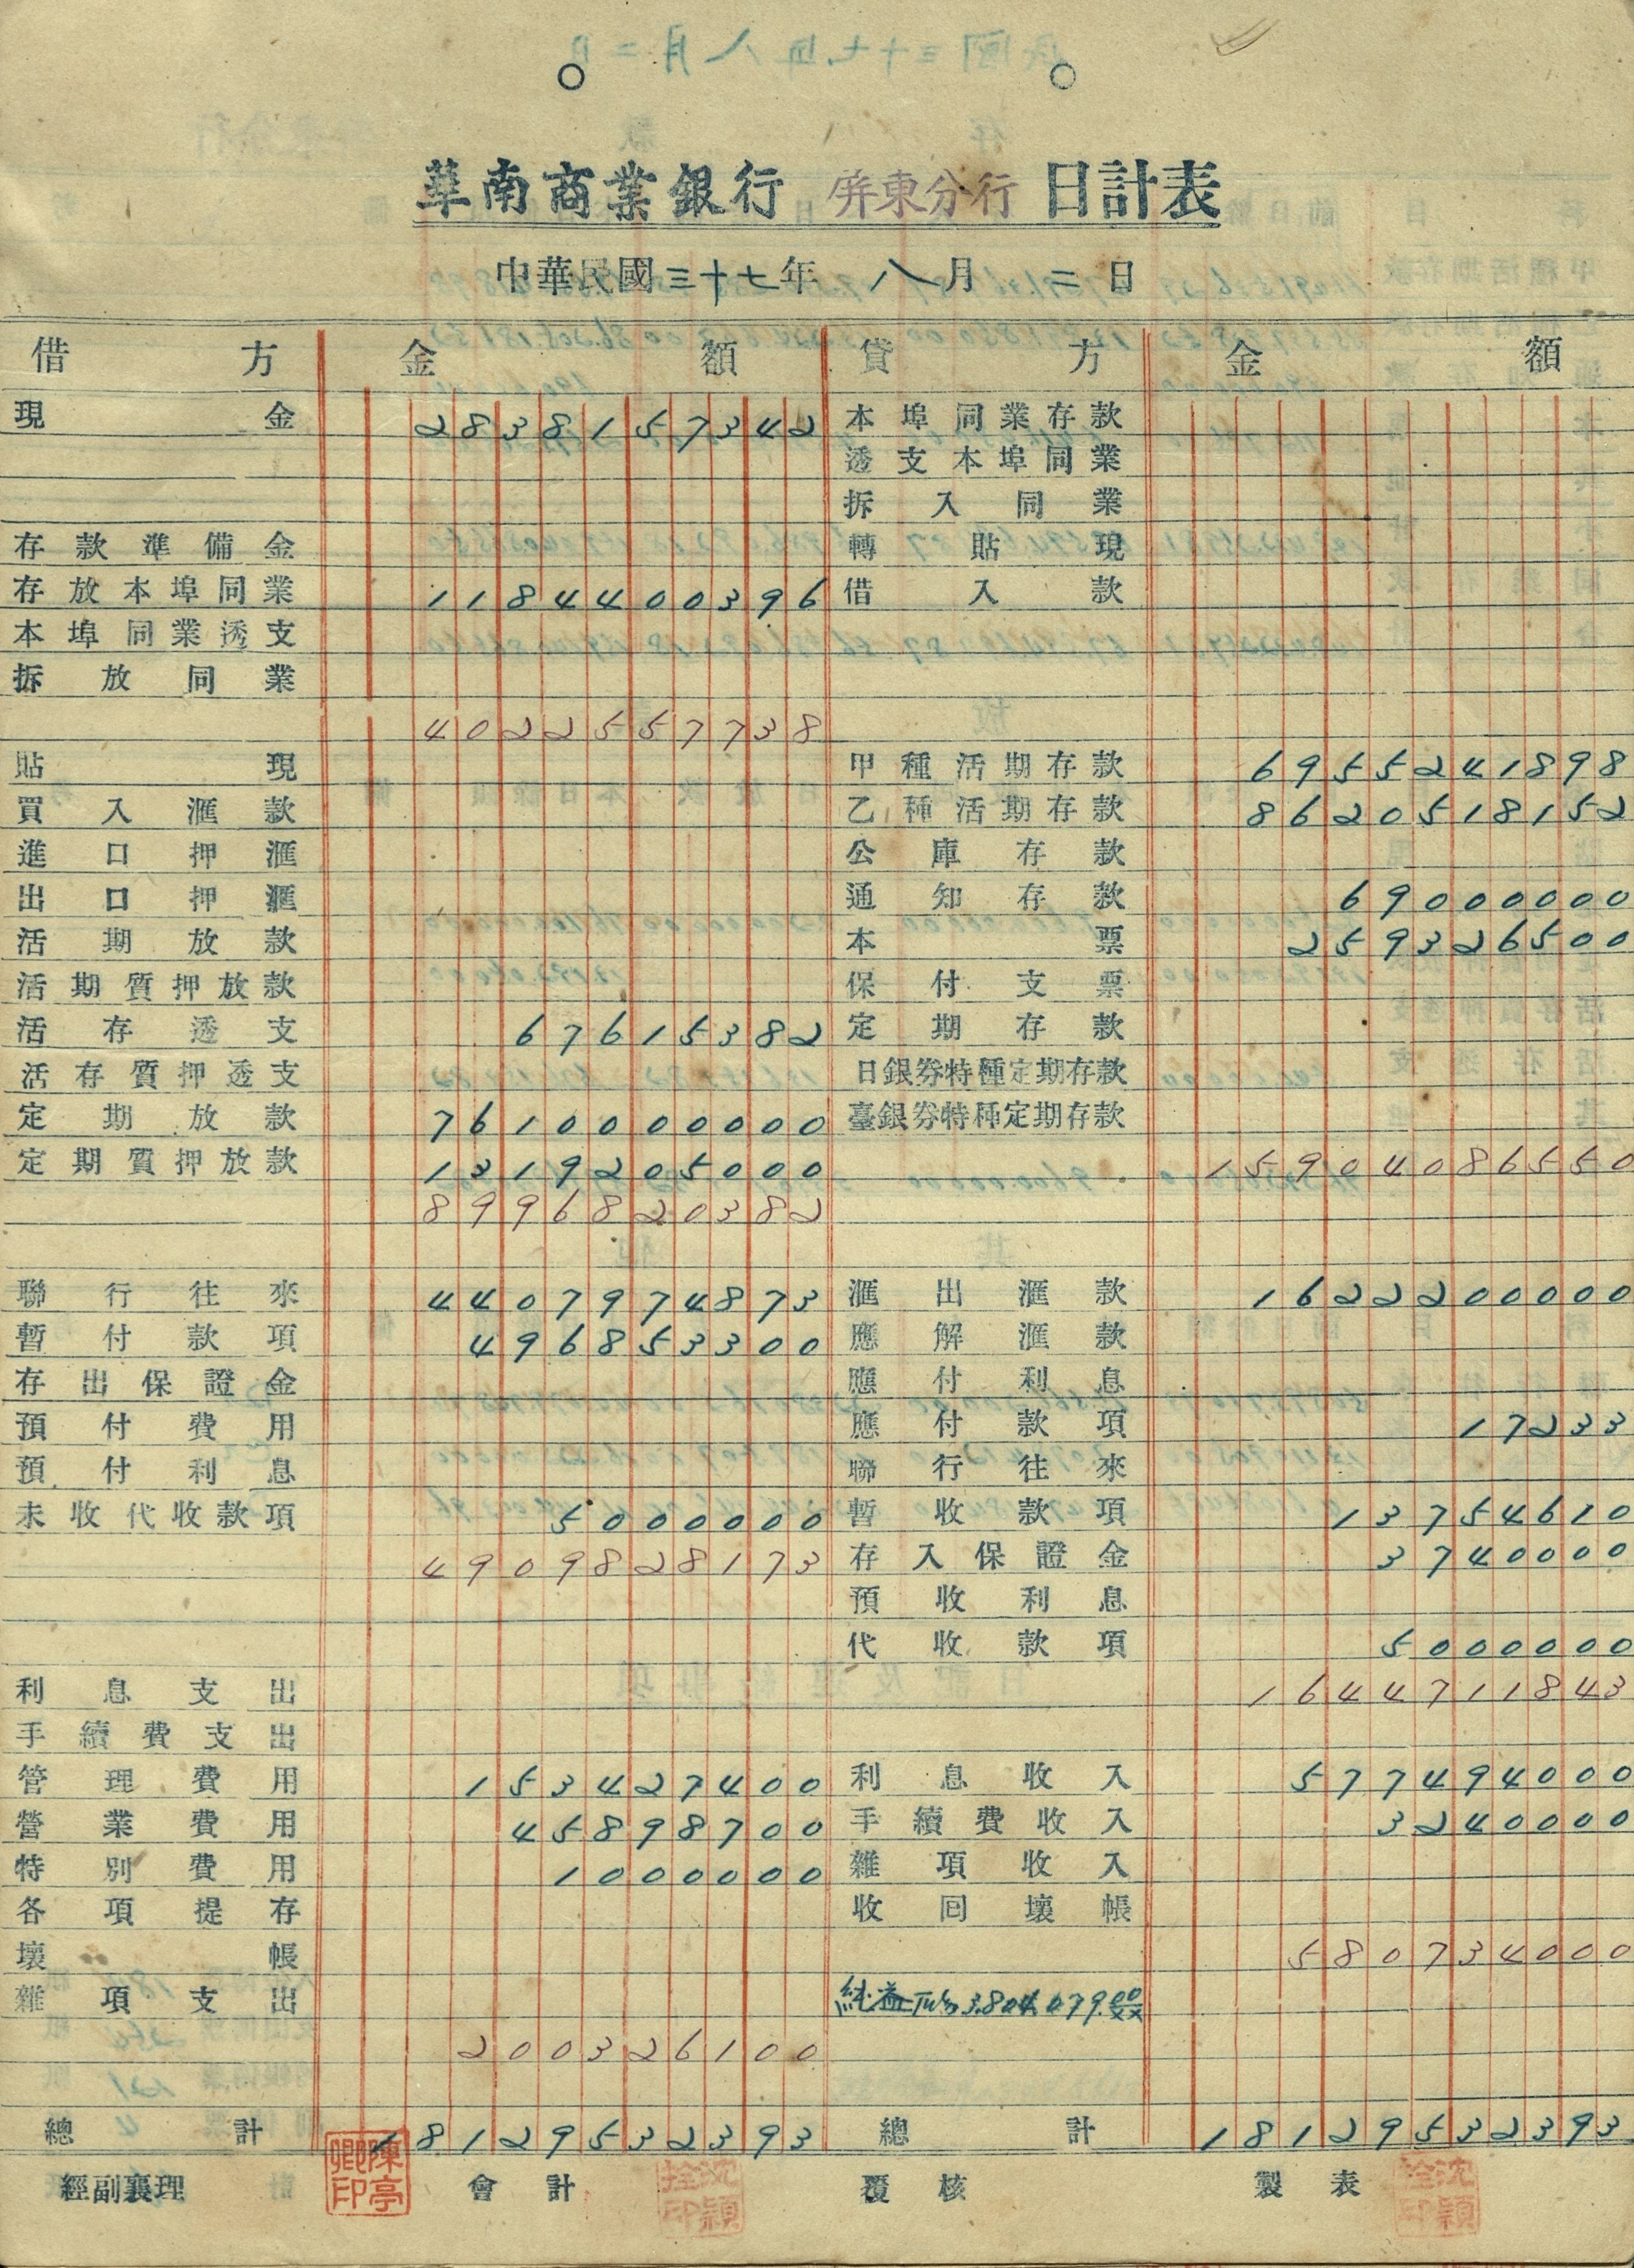 華南商業銀行 屏東分行 日計表
中華民國三十七年 八月 二日
借方 金額 貸方 金額
現金 2838157342 本埠同業存款
透支本埠同業
拆入同業
存款準備金 轉貼現
存放本埠同業 1184400396 借入款
本埠同業透支
拆放同業
4022557738
貼現 甲種活期存款 6955241898
買入滙款 乙種活期存款 8620518152
進口押滙 公庫存款
出口押滙 通知存款 69000000
活期放款 本票 259326500
活期質押放款 保付支票
活存透支 67615382 定期存款
活存質押透支 日銀券特種定期存款
定期放款 7610000000 臺銀券特種定期存款
定期質押放款 1319205000 15904086550
8996820382
聯行往來 4407974873 滙出滙款 1622200000
暫付款項 496853300 應解滙款
存出保證金 應付利息
預付費用 應付款項 17233
預付利息 聯行往來
未收代收款項 5000000 暫收款項 13754610
4909828173 存入保證金 3740000
預收利息
代收款項 5000000
利息支出 1644711843
手續費支出
管理費用 153427400 利息收入 577494000
營業費用 45898700 手續費收入 3240000
特別費用 1000000 雜項收入
各項提存 收回壞帳
壞帳 580734000
雜項支出 純益 3.804.079.00
200326100
總計 18129532393 總計 18129532393
經副襄理 陳亭卿印 會計 沈拴穎印 覆核 製表 沈拴穎印